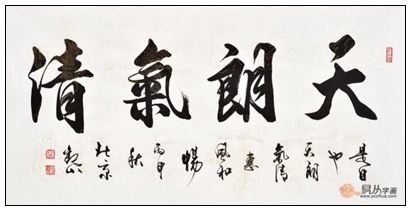 天朗氣清
是日
也
天朗
氣清
惠
風和
暢
丙申
秋
北京
易从字画
www.yizihua.com